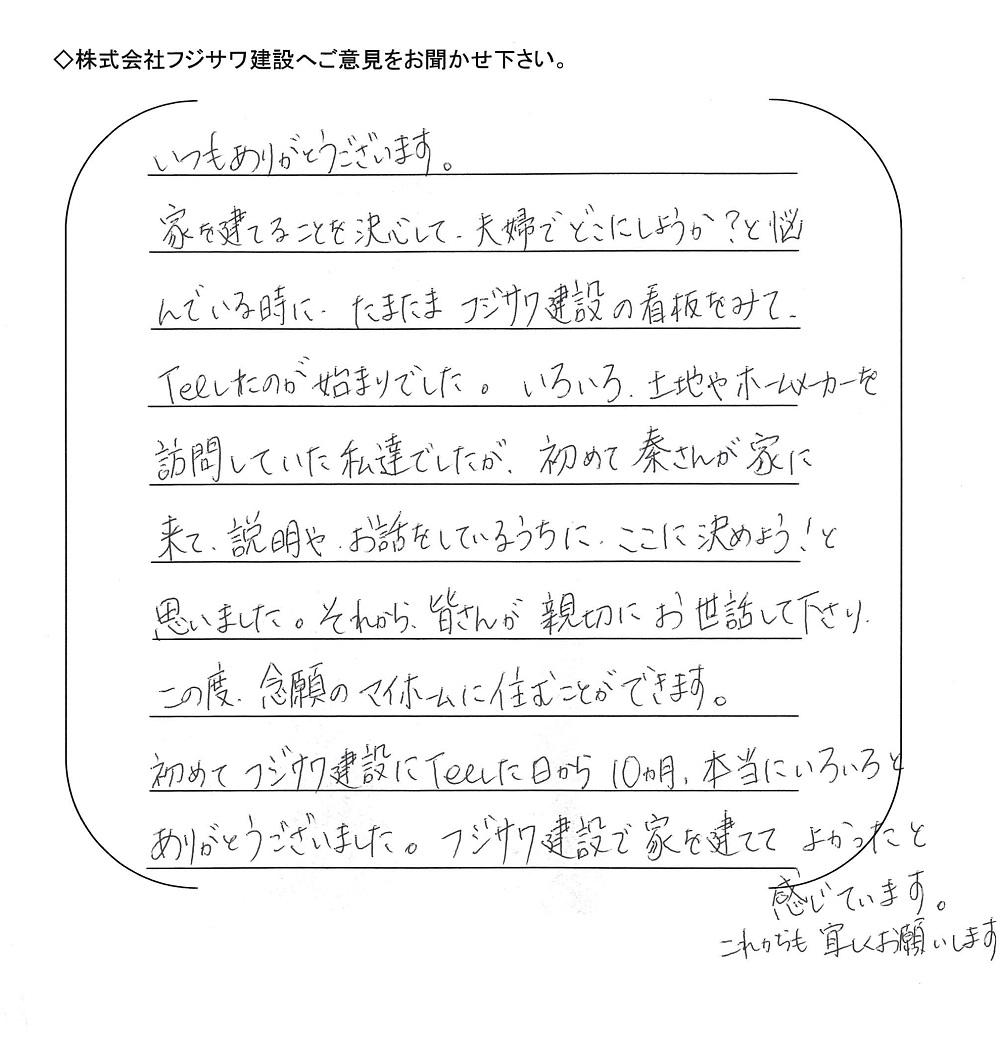 ◇株式会社フジサワ建設へご意見をお聞かせ下さい。
いつもありがとうございます。
家を建てることを決心して、夫婦でどこにしようか?と悩
んでいる時に、たまたまフジサワ建設の看板をみて、
Telしたのが始まりでした。いろいろ、土地やホームメーカーを
訪問していた私達でしたが、初めて秦さんが家に
来て、説明や、お話をしているうちに、ここに決めよう!と
思いました。それから、皆さんが親切にお世話して下さり、
この度、念願のマイホームに住むことができます。
初めてフジサワ建設にTelした日から10ヵ月、本当にいろいろと
ありがとうございました。フジサワ建設で家を建ててよかったと
感じています。
これからも宜しくお願いします